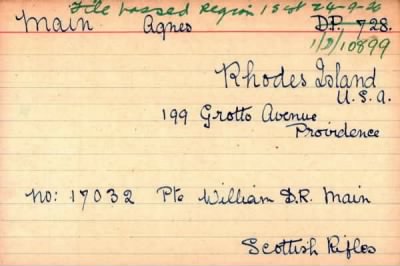 File passed Region 1 S of 24-9-20
Main Agnes D.P. 728.
1/D/10899
Rhodes Island
U.S.A.
199 Grotto Avenue
Providence
No: 17032 Pte William D.R. Main
Scottish Rifles